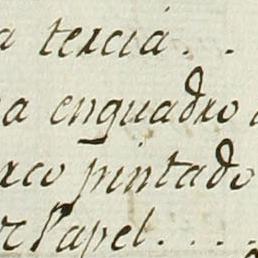 a tercia . .
a enquadro
rco pintado
Papel. . . .